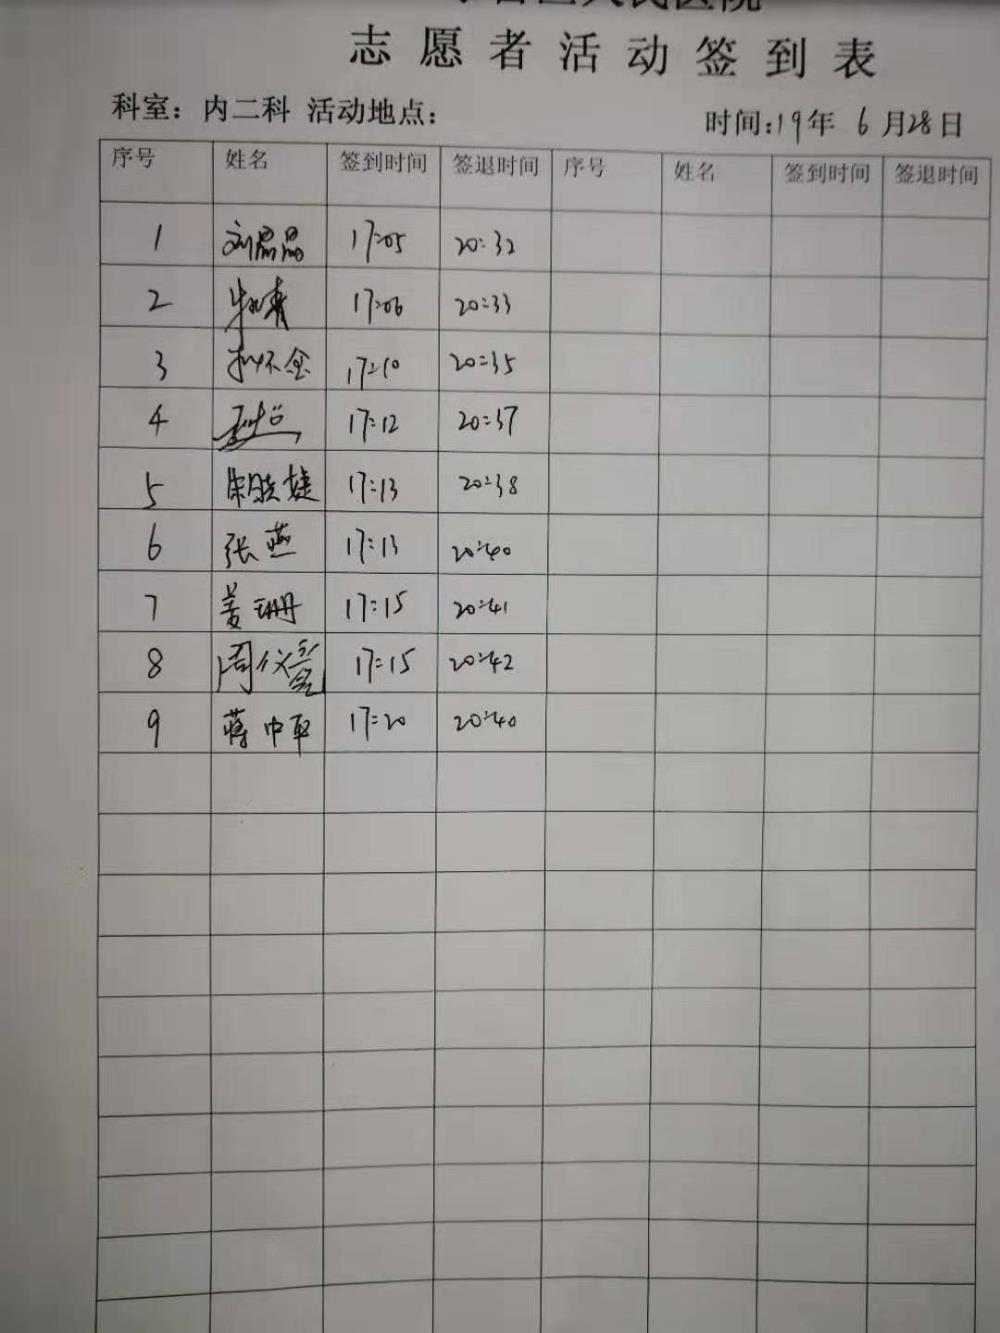 人民医院
志愿者活动签到表
科室：内二科 活动地点：
时间:19年 6月28日
序号 姓名 签到时间 签退时间 序号 姓名 签到时间 签退时间
1 刘晶晶 17:05 20:32
2 17:06 20:33
3 17:10 20:35
4 17:12 20:37
5 朱晓婕 17:13 20:38
6 张燕 17:13 20:40
7 姜珊 17:15 20:41
8 周 17:15 20:42
9 蒋中平 17:20 20:40